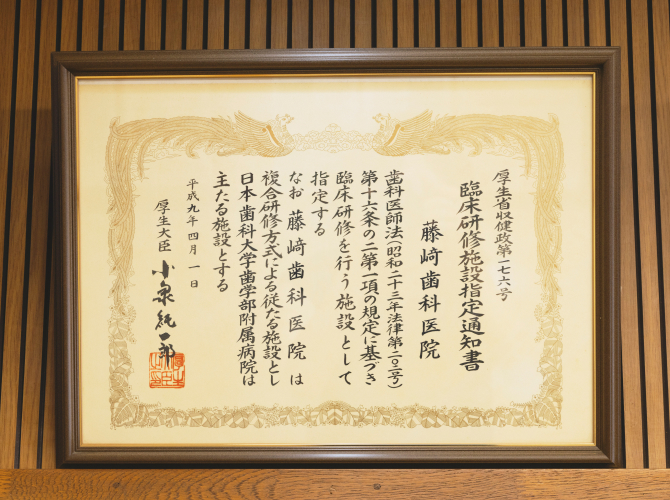 厚生省収健政第一七六号
臨床研修施設指定通知書
藤﨑歯科医院
歯科医師法(昭和二十三年法律第二〇二号)
第十六条の二第一項の規定に基づき
臨床研修を行う施設として
指定する
なお藤﨑歯科医院は
複合研修方式による従たる施設とし
日本歯科大学歯学部附属病院は
主たる施設とする
平成九年四月一日
厚生大臣 小泉純一郎